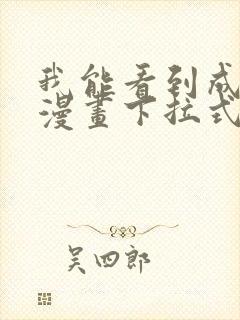 我能看到成
漫畫下拉式
吴四郎